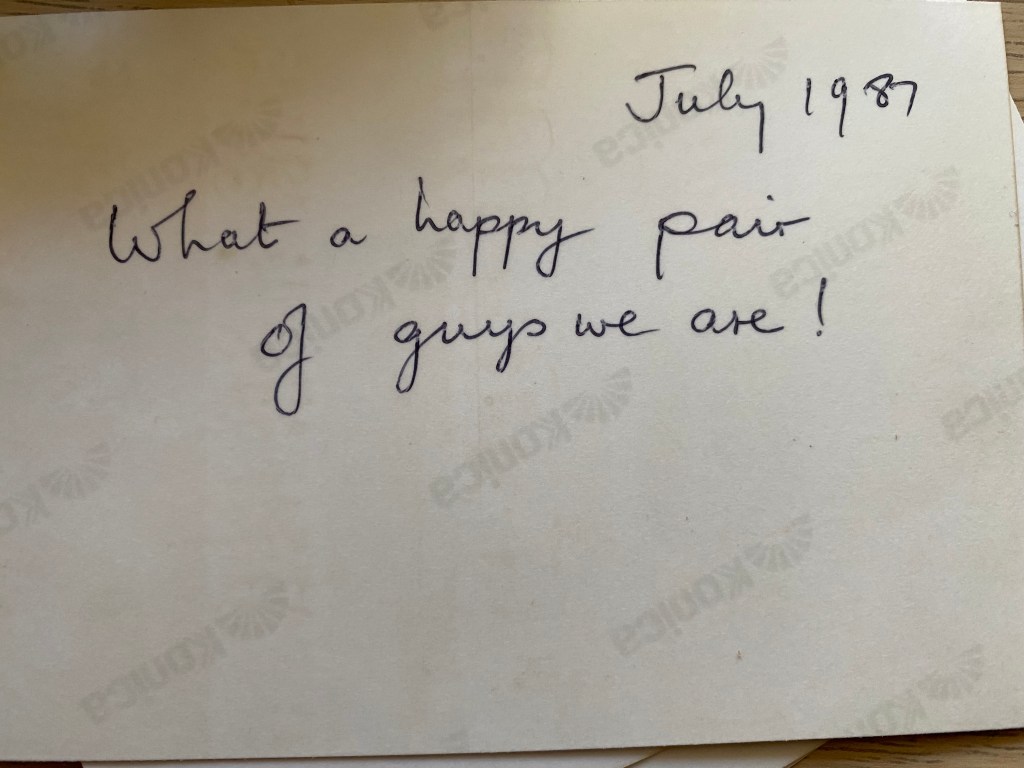 July 1987
What a happy pair
of guys we are!
Konica
Konica
Konica
Konica
Konica
Konica
Konica
Konica
Konica